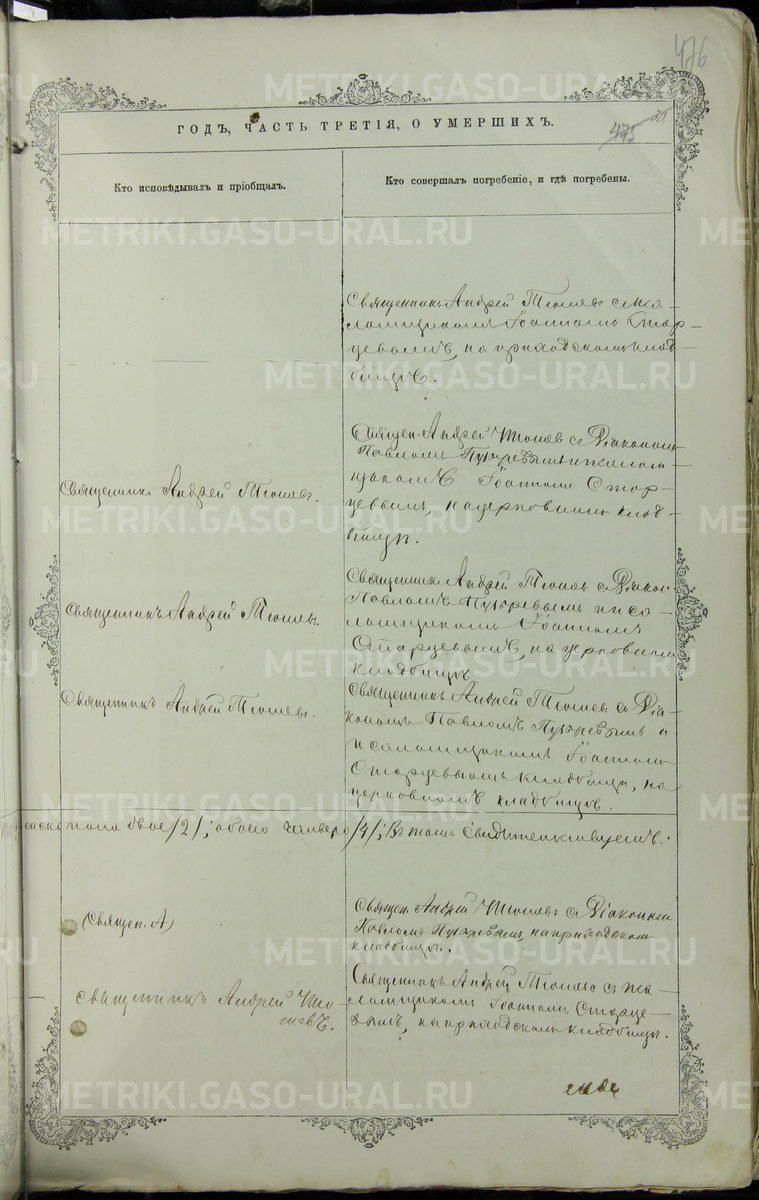 476
ГОДЪ, ЧАСТЬ ТРЕТІЯ, О УМЕРШИХЪ.
475
Кто исповѣдывалъ и пріобщалъ.
Кто совершалъ погребеніе, и гдѣ погребены.
METRIKI.GASO-URAL.RU
Священникъ Андрей Тюшевъ съ пса-
ломщикомъ Іоанномъ Стар-
цевымъ, на приходскомъ клад-
бищѣ.
Священникъ Андрей Тюшевъ.
Священ. Андрей Тюшевъ съ Діакономъ
Павломъ Пузыревымъ и псалом-
щикомъ Іоанномъ Стар-
цевымъ, на церковномъ клад-
бищѣ.
Священникъ Андрей Тюшевъ.
Священникъ Андрей Тюшевъ съ Діакон.
Павломъ Пузыревымъ и пса-
ломщикомъ Іоанномъ
Старцевымъ, на церковномъ
кладбищѣ
Священникъ Андрей Тюшевъ.
Священникъ Андрей Тюшевъ съ Діа-
кономъ Павломъ Пузыревымъ и
псаломщикомъ Іоанномъ
Старцевымъ кладбищѣ, на
церковномъ кладбищѣ.
пола двое /2/; обоего четверо /4/; Въ томъ свидѣтельствуемъ:
(Священ. А)
Священ. Андрей Тюшевъ съ Діакономъ
Павломъ Пузыревымъ, на приходскомъ
кладбищѣ.
священникъ Андрей Тю-
шевъ.
Священникъ Андрей Тюшевъ съ пса-
ломщикомъ Іоанномъ Старце-
вымъ, на приходскомъ кладбищѣ.